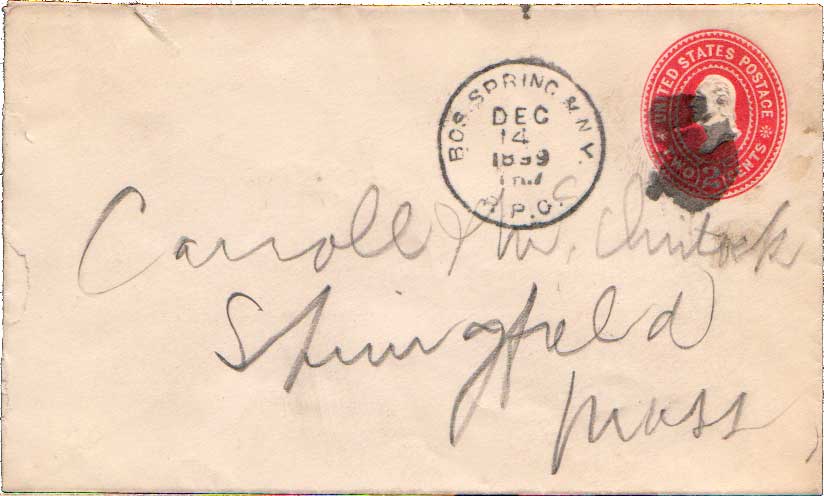 UNITED STATES POSTAGE
TWO 2 CENTS
BOS. SPRING. & N.Y.
DEC
14
1899
R.P.O.
Carroll & Mc
Springfield
Mass